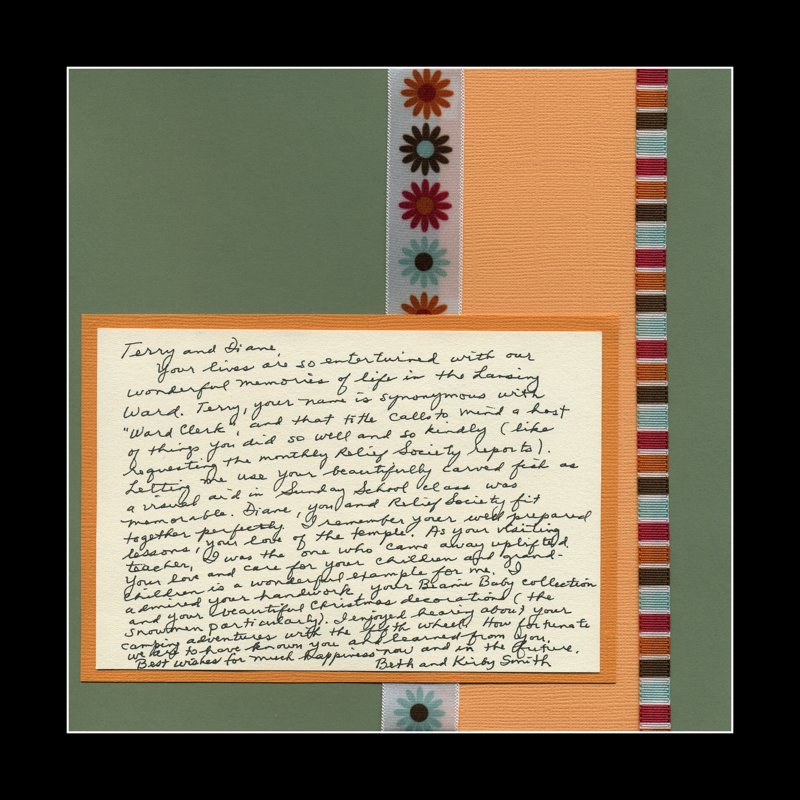 Terry and Diane,
Your lives are so entertwined with our
wonderful memories of life in the Lansing
Ward. Terry, your name is synonymous with
"Ward Clerk", and that title calls to mind a host
of things you did so well and so kindly (like
requesting the monthly Relief Society reports).
Letting me use your beautifully carved fish as
a visual aid in Sunday School class was
memorable. Diane, you and Relief Society fit
together perfectly. I remember your well prepared
lessons, your love of the temple. As your visiting
teacher, I was the one who came away uplifted.
Your love and care for your children and grand-
children is a wonderful example for me. I
admired your handwork your Beanie Baby collection
and your beautiful Christmas decorations (the
snowmen particularly). I enjoyed hearing about your
camping adventures with the fifth wheel. How fortunate
we are to have known you and learned from you.
Best wishes for much happiness now and in the future.
Beth and Kirby Smith